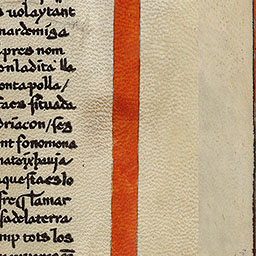 volaytant
nardemiga
pres nom
onladita lla
ontapolla/
faes situada
driacon/ses
nt fonomona
aquestaeslo
fre lamar
sadelaterra
mp tots los